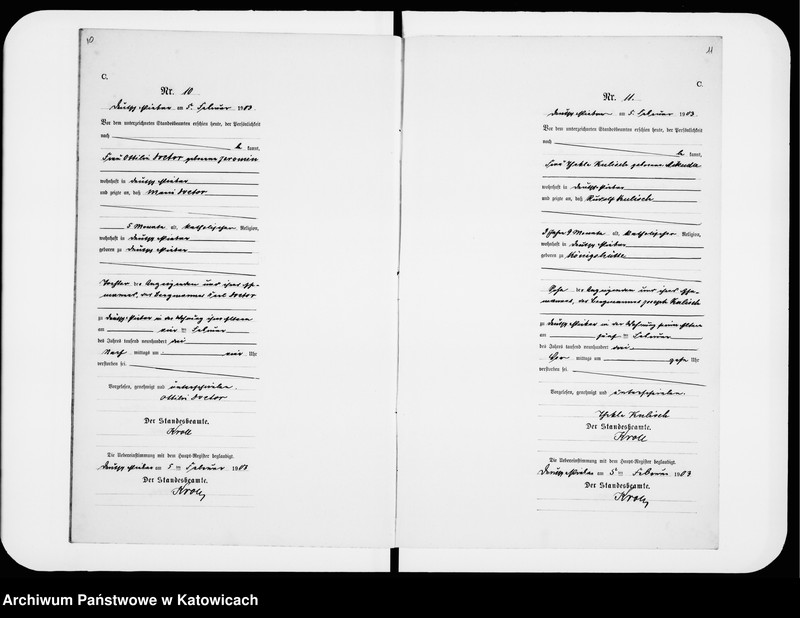 10
C.
Nr. 10
am 5. Februar 1903.
Vor dem unterzeichneten Standesbeamten erschien heute, der Persönlichkeit
nach
kannt,
Frau Ottilie Doctor geborene Jeromin
wohnhaft in Deutsch Piekar
und zeigte an, daß Marie Doctor
5 Monate alt, katholischer Religion,
wohnhaft in Deutsch Piekar
geboren zu Deutsch Piekar
Tochter der Anzeigenden und ihres Ehe-
mannes, des Bergmannes Karl Doctor
zu Deutsch Piekar in der Wohnung ihrer Eltern
am vier ten Februar
des Jahres tausend neunhundert drei
Nach mittags um vier Uhr
verstorben sei.
Vorgelesen, genehmigt und unterschrieben.
Ottilie Doctor
Der Standesbeamte.
Kroll
Die Uebereinstimmung mit dem Haupt-Register beglaubigt.
Deutsch Piekar am 5 ten Februar 1903
Der Standesbeamte.
Kroll
11
C.
Nr. 11.
Deutsch Piekar am 5. Februar 1903.
Vor dem unterzeichneten Standesbeamten erschien heute, der Persönlichkeit
nach
kannt,
Frau Thekla Kulisch geborene
wohnhaft in Deutsch Piekar
und zeigte an, daß Rudolf Kulisch
Jahre 9 Monate alt, katholischer Religion,
wohnhaft in Deutsch Piekar
geboren zu Königshütte
Sohn der Anzeigenden und ihres Ehe-
mannes, des Bergmannes Joseph Kulisch
zu Deutsch Piekar in der Wohnung seiner Eltern
am fünf ten Februar
des Jahres tausend neunhundert drei
Vor mittags um Uhr
verstorben sei.
Vorgelesen, genehmigt und unterschrieben.
Thekla Kulisch
Der Standesbeamte.
Kroll
Die Uebereinstimmung mit dem Haupt-Register beglaubigt.
Deutsch Piekar am 5 ten Februar 1903
Der Standesbeamte.
Kroll
Archiwum Państwowe w Katowicach